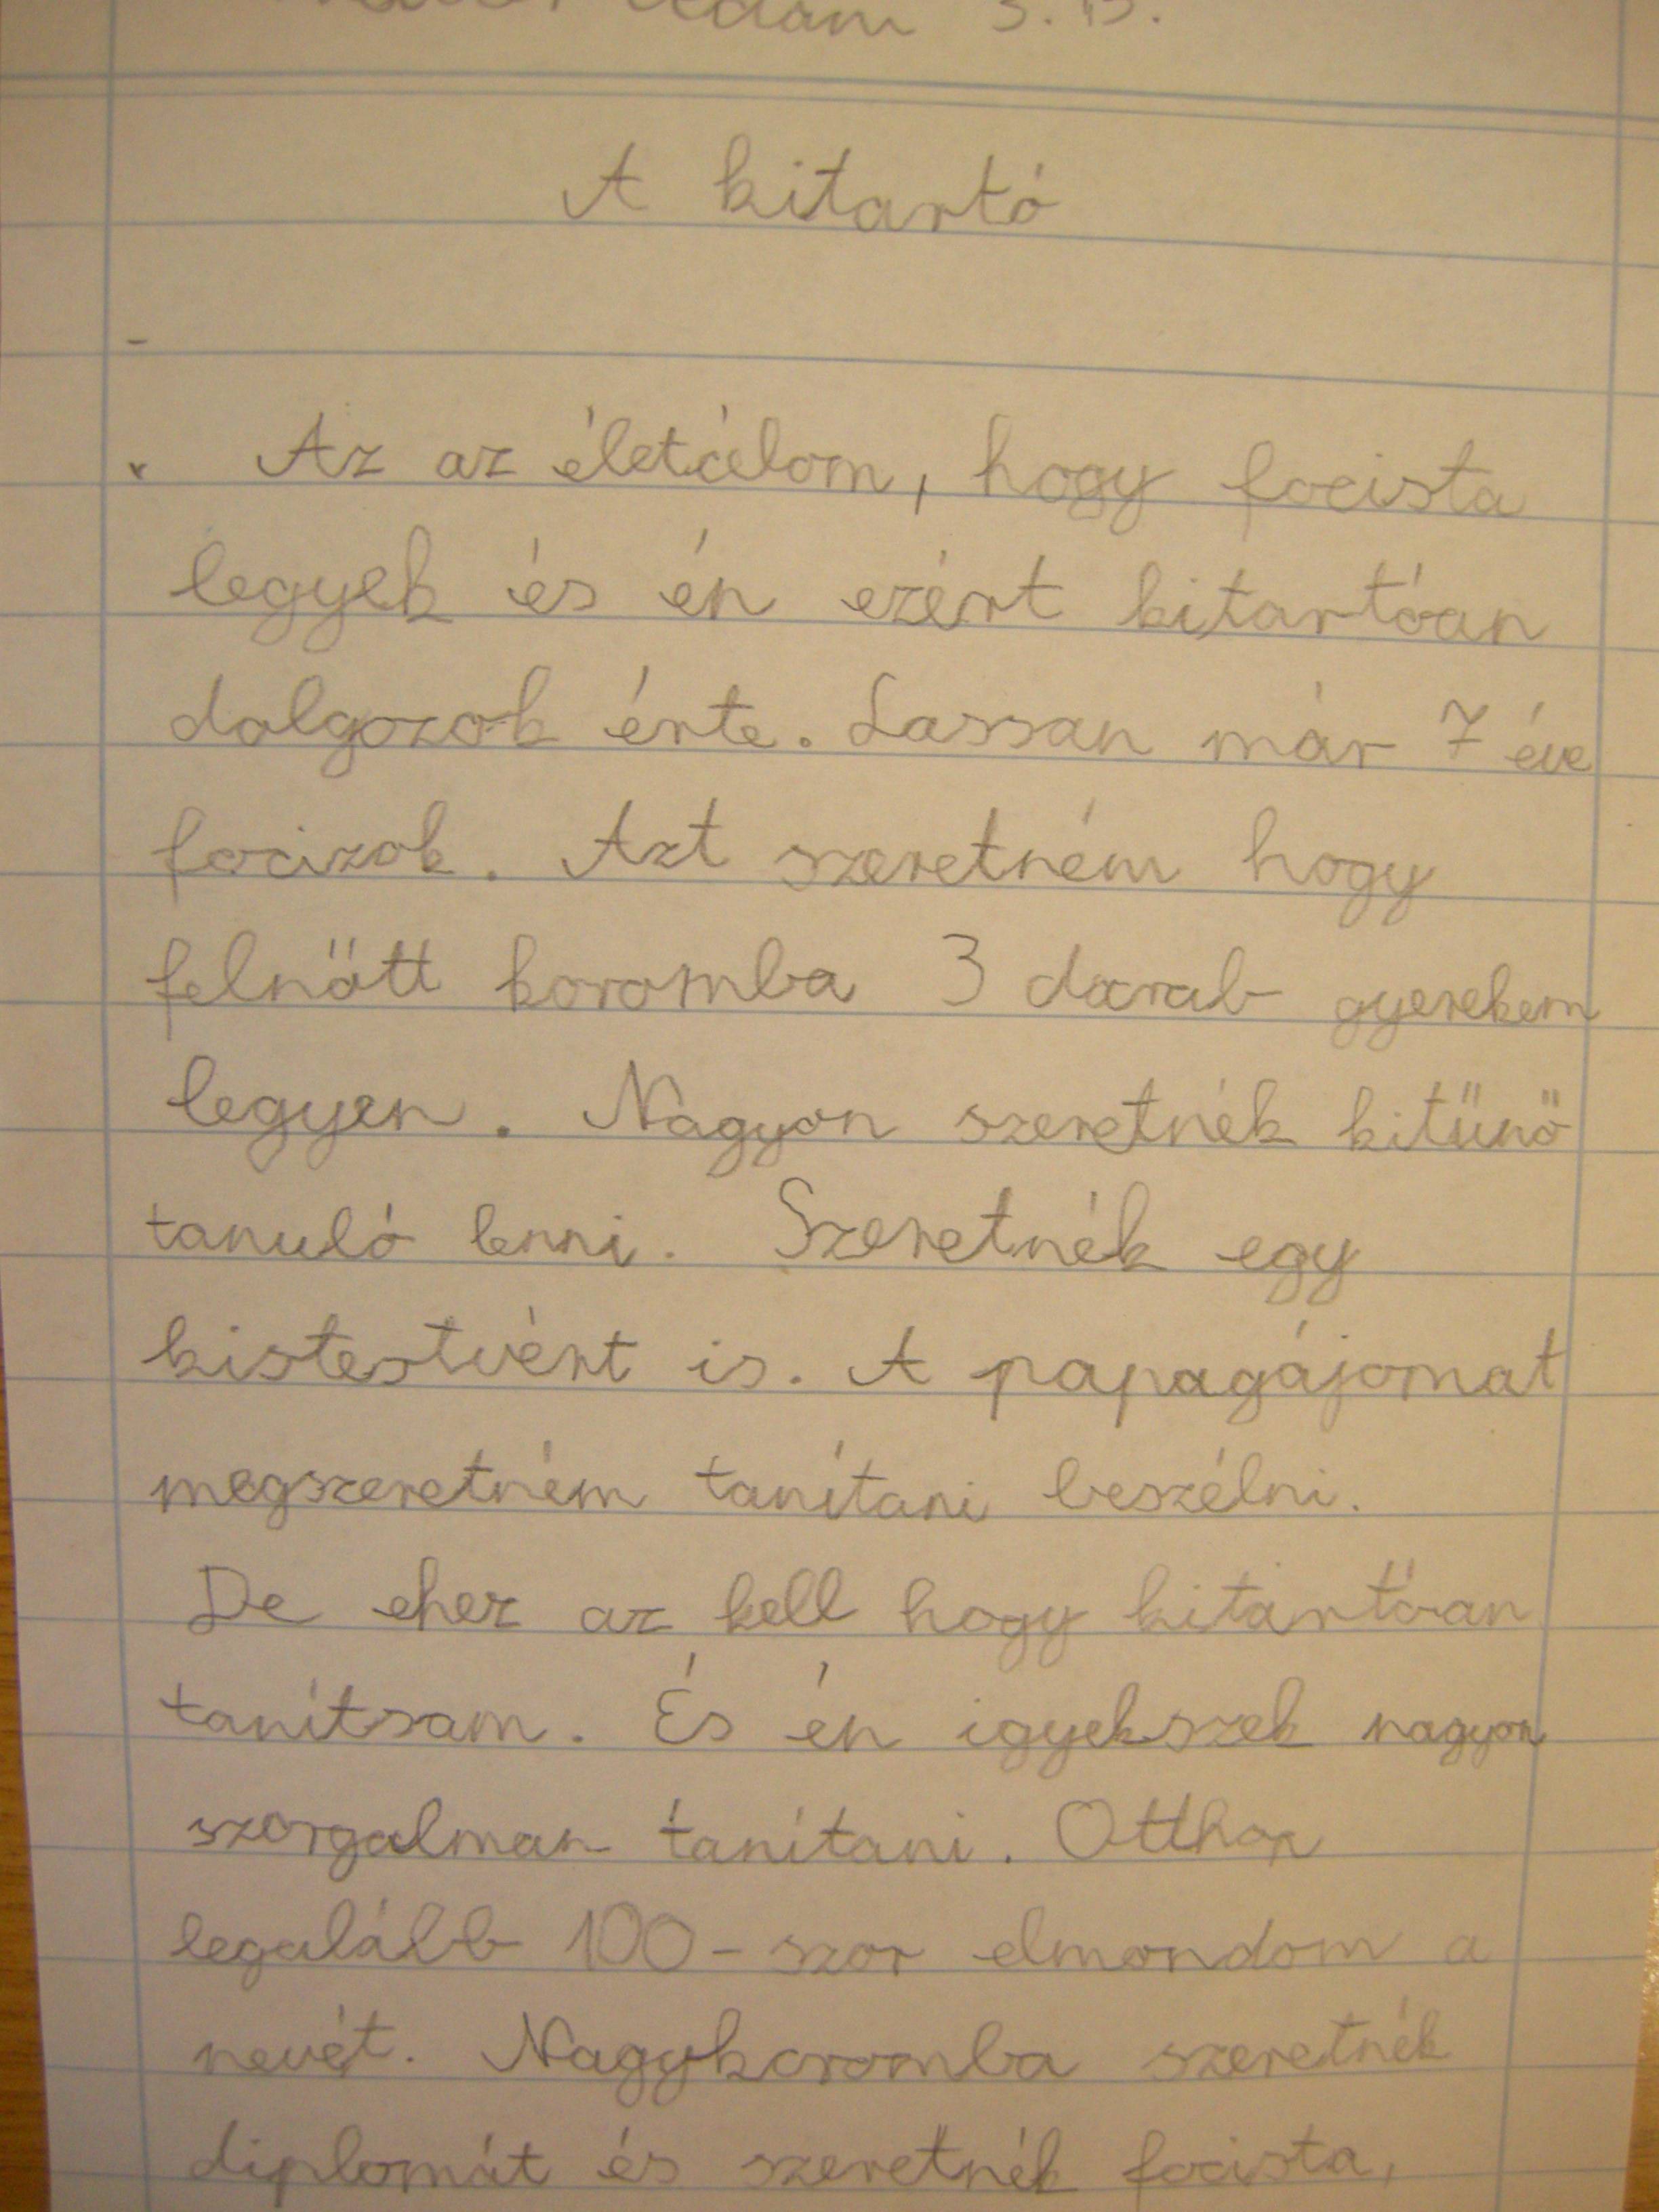 Ádám 3. B.
A kitartó
Az az életcélom, hogy focista
legyek és én ezért kitartóan
dolgozok érte. Lassan már 7 éve
focizok. Azt szeretném hogy
felnőtt koromba 3 darab gyerekem
legyen. Nagyon szeretnék kitűnő
tanuló lenni. Szeretnék egy
kistestvért is. A papagájomat
megszeretném tanítani beszélni.
De ehez az kell hogy kitartőan
tanítsam. És én igyekszek nagyon
szorgalman tanítani. Otthon
legalább 100-szor elmondom a
nevét. Nagykoromba szeretnék
diplomát és szeretnék focista,